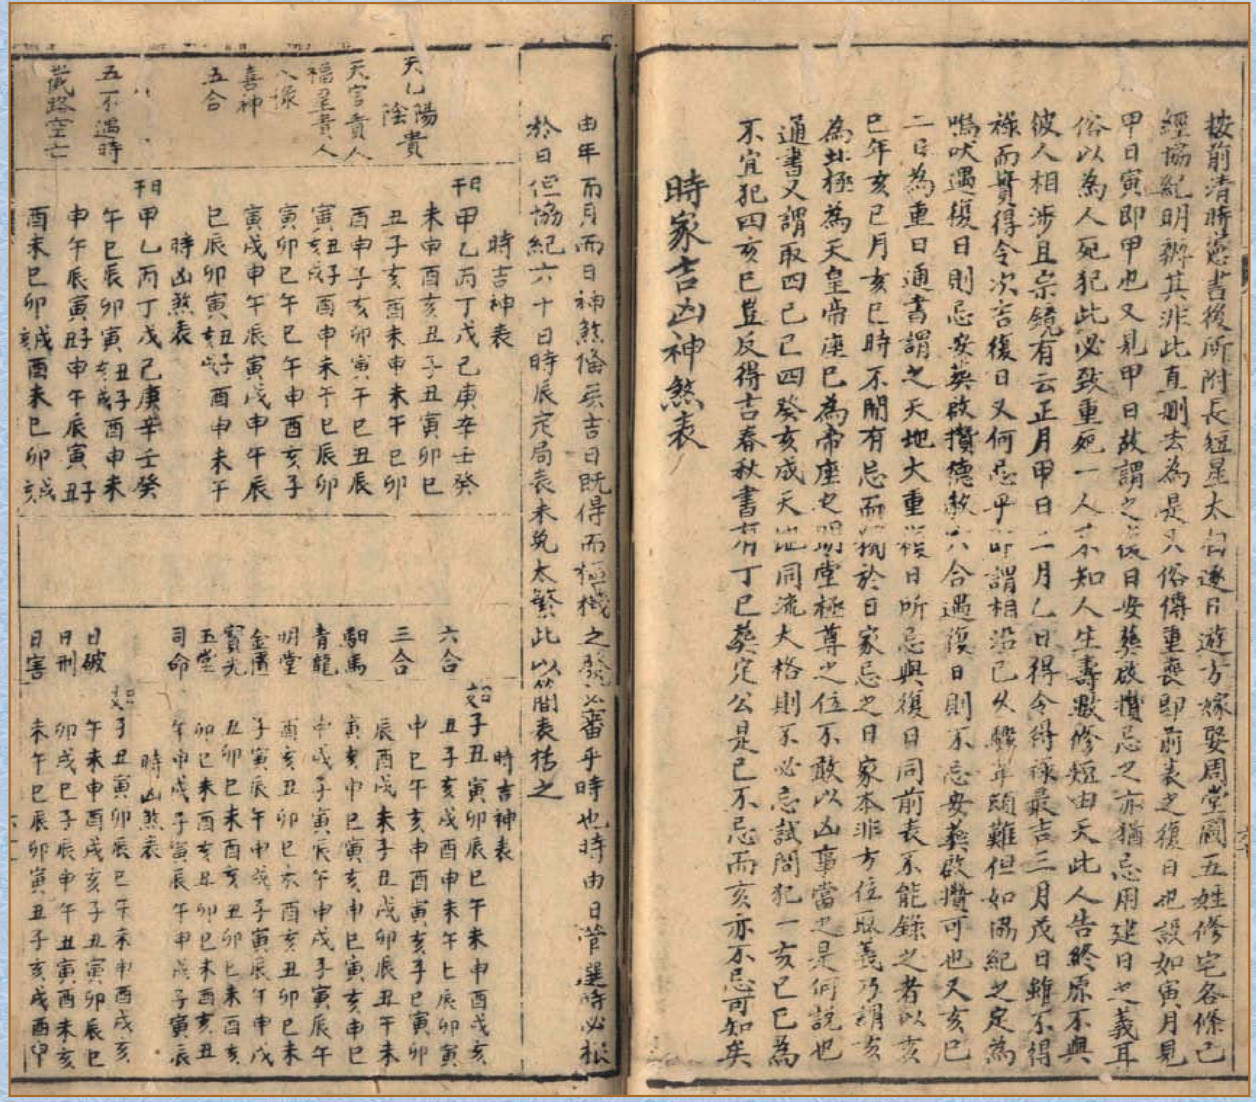 按前清時憲書後所附長短星太白逐日遊方嫁娶周堂圖五姓修宅各條已
經協紀明辨其非此直刪去為是又俗傳重喪即前表之復日也設如寅月見
甲日寅即甲也又見甲日故謂之復日安葬啟攢忌之亦猶忌用建日之義耳
俗以為人死犯此必致重死一人不知人生壽數修短由天此人告終原不與
彼人相涉且宗鏡有云正月甲日二月乙日得令得祿最吉三月戊日雖不得
祿而實得令次言復日又何忌乎所謂相沿已久驟革頭難但如協紀之定為
鳴吠遇復日則忌安葬啟攢德赦六合遇復日則不忌安葬啟攢可也又亥巳
二日為重日通書謂之天地大重喪日所忌與復日同前表不能錄之者以亥
巳年亥巳月亥巳時不聞有忌而獨於日家忌之日家本非方位取義乃謂亥
為北極為天皇帝座巳為帝座之明堂極尊之位不敢以凶事當之是何說也
通書又謂取四己巳四癸亥成天地同流大格則不必忌試問犯一亥巳已為
不宜犯四亥巳豈反得吉春秋書有丁巳葬定公是巳不忌而亥亦不忌可知矣
時家吉凶神煞表
由年而月而日神煞備矣吉日既得而樞機之發必審乎時也時由日管選時必根
於日但協紀六十日時辰定局表未免太繁此以簡表括之
時吉神表
日干 甲乙丙丁戊己庚辛壬癸
天乙 陽貴 未申酉亥丑子丑寅卯巳
陰貴 丑子亥酉未申未午巳卯
天官貴人 酉申子亥卯寅午巳丑辰
福星貴人
八祿 寅卯巳午巳午申酉亥子
喜神 寅戌申午辰寅戌申午辰
五合
時凶煞表
日干 甲乙丙丁戊己庚辛壬癸
五不遇時
截路空亡
時吉神表
日支 子丑寅卯辰巳午未申酉戌亥
六合 丑子亥戌酉申未午巳辰卯寅
三合
馹馬 寅亥申巳寅亥申巳寅亥申巳
青龍 申戌子寅辰午申戌子寅辰午
明堂 酉亥丑卯巳未酉亥丑卯巳未
金匱 子寅辰午申戌子寅辰午申戌
寶光 丑卯巳未酉亥丑卯巳未酉亥
玉堂 卯巳未酉亥丑卯巳未酉亥丑
司命 午申戌子寅辰午申戌子寅辰
時凶煞表
日支 子丑寅卯辰巳午未申酉戌亥
日破 午未申酉戌亥子丑寅卯辰巳
日刑 卯戌巳子辰申午丑寅酉未亥
日害 未午巳辰卯寅丑子亥戌酉申